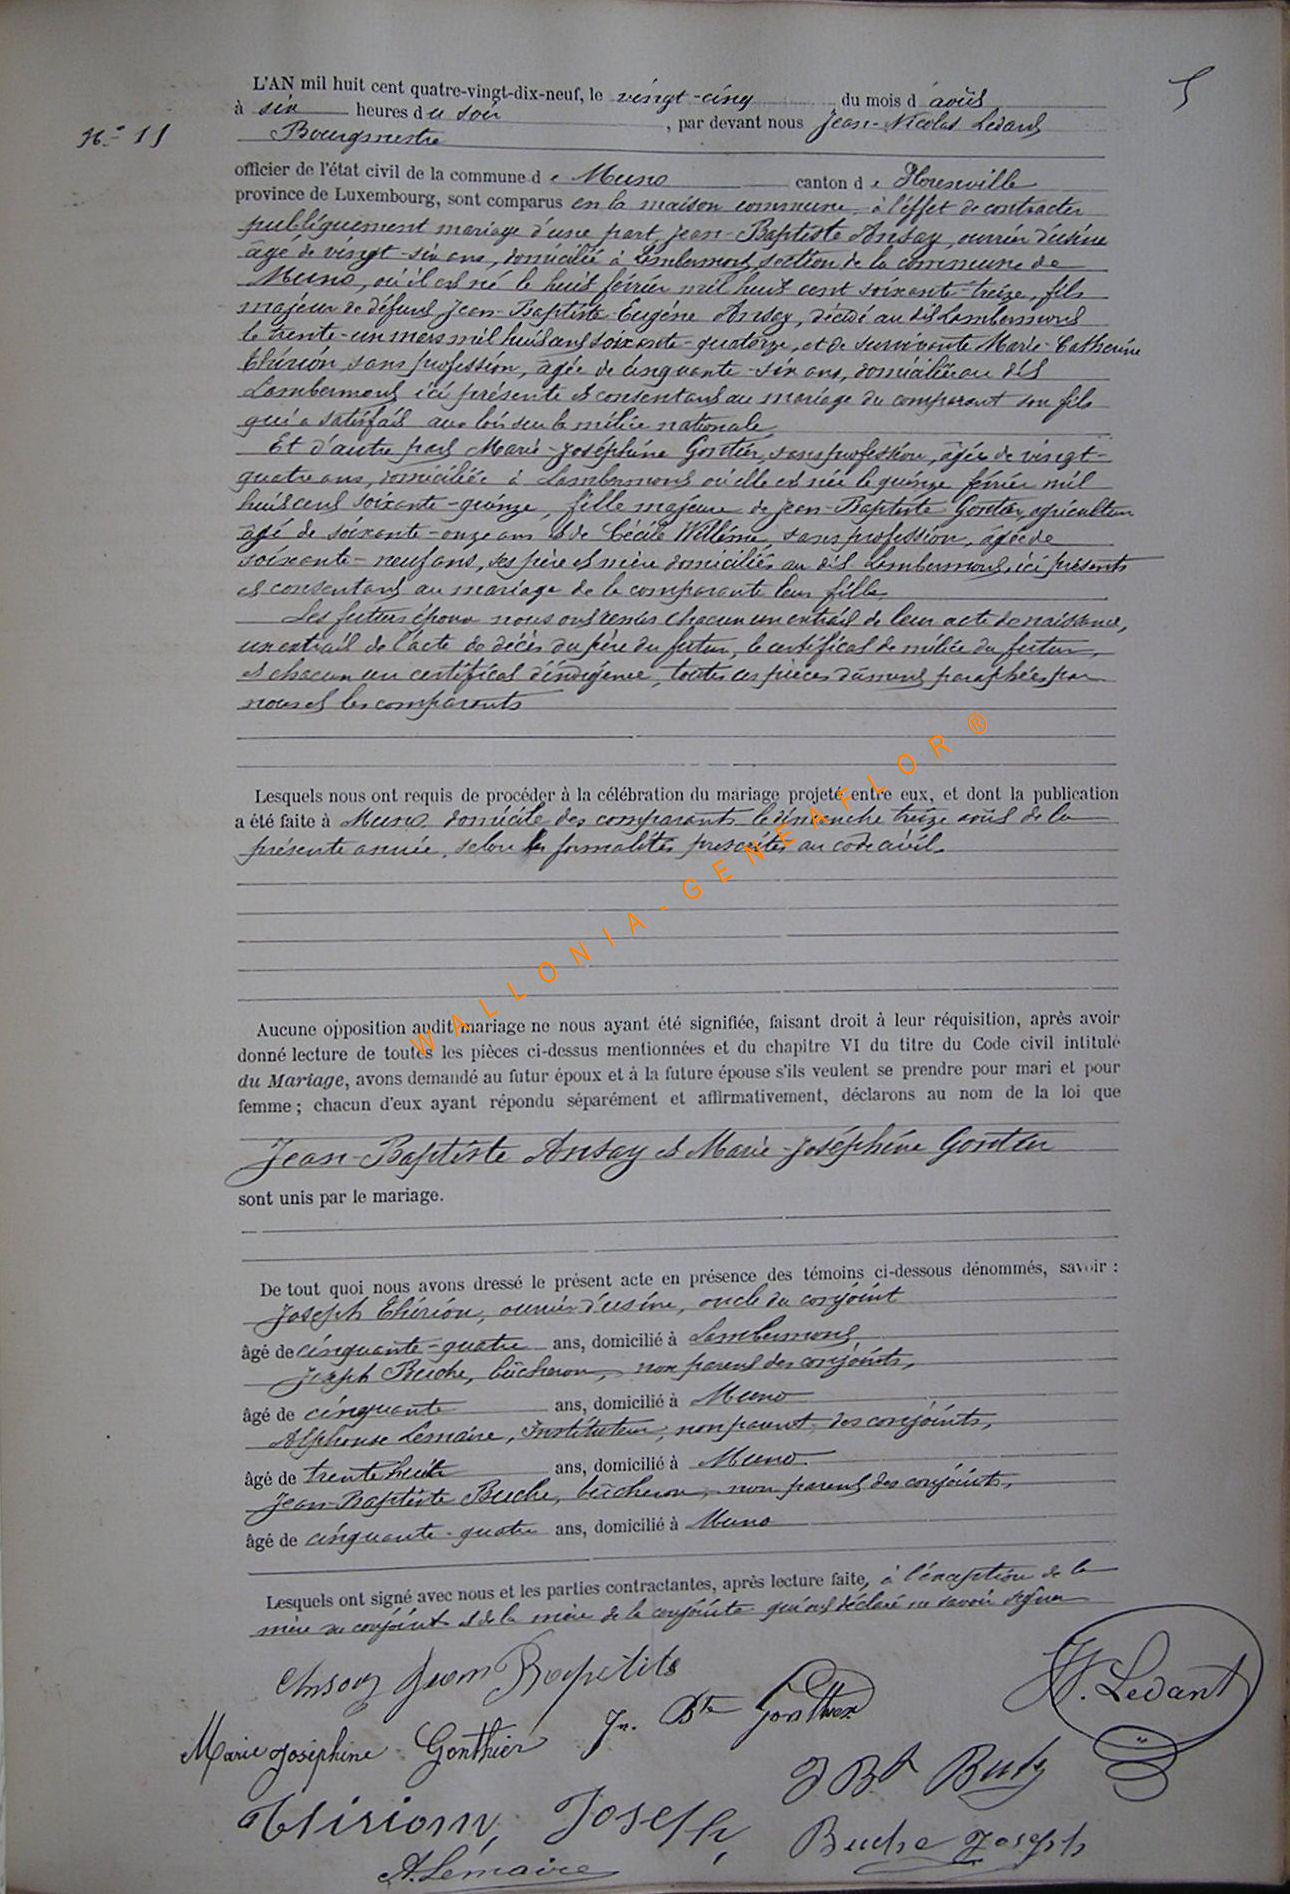 5
L'AN mil huit cent quatre-vingt-dix-neuf, le vingt-cinq du mois d'août
à six heures du soir, par devant nous Jean-Nicolas Ledant
N° 11
Bourgmestre
officier de l'état civil de la commune de Muno canton de Florenville
province de Luxembourg, sont comparus en la maison commune, à l'effet de contracter
publiquement mariage d'une part, Jean-Baptiste Ansay, ouvrier d'usine
âgé de vingt-six ans, domicilié à Lambermont, section de la commune de
Muno, où il est né le huit février mil huit cent soixante-treize, fils
majeur de défunt Jean-Baptiste-Eugène Ansay, décédé au dit Lambermont
le trente-un mars mil huit cent soixante-quatorze, et de survivante Marie-Catherine
Thirion, sans profession, âgée de cinquante-six ans, domiciliée au dit
Lambermont ici présente et consentant au mariage du comparant son fils
qui a satisfait aux lois sur la milice nationale
Et d'autre part Marie-Joséphine Gontier, sans profession, âgée de vingt-
quatre ans, domiciliée à Lambermont où elle est née le quinze février mil
huit cent soixante-quinze, fille majeure de Jean-Baptiste Gontier, agriculteur
âgé de soixante-onze ans et de Cécile Willème, sans profession, âgée de
soixante-neuf ans, ses père et mère domiciliés au dit Lambermont, ici présents
et consentant au mariage de la comparante leur fille
Les futurs époux nous ont remis chacun un extrait de leur acte de naissance,
un extrait de l'acte de décès du père du futur, le certificat de milice du futur,
et chacun un certificat d'indigence, toutes ces pièces dûment paraphées par
nous et les comparants
Lesquels nous ont requis de procéder à la célébration du mariage projeté entre eux, et dont la publication
a été faite à Muno domicile des comparants le dimanche treize août de la
présente année, selon les formalités prescrites au code civil.
WALLONIA-GENEAFLOR ®
Aucune opposition audit mariage ne nous ayant été signifiée, faisant droit à leur réquisition, après avoir
donné lecture de toutes les pièces ci-dessus mentionnées et du chapitre VI du titre du Code civil intitulé
du Mariage, avons demandé au futur époux et à la future épouse s'ils veulent se prendre pour mari et pour
femme ; chacun d'eux ayant répondu séparément et affirmativement, déclarons au nom de la loi que
Jean-Baptiste Ansay et Marie-Joséphine Gontier
sont unis par le mariage.
De tout quoi nous avons dressé le présent acte en présence des témoins ci-dessous dénommés, savoir :
Joseph Thirion, ouvrier d'usine, oncle du conjoint
âgé de cinquante-quatre ans, domicilié à Lambermont,
Joseph Buche, bûcheron, non parent des conjoints,
âgé de cinquante ans, domicilié à Muno
Alphonse Lemaire, Instituteur, non parent des conjoints,
âgé de trente huit ans, domicilié à Muno
Jean-Baptiste Buche, bûcheron, non parent des conjoints,
âgé de cinquante-quatre ans, domicilié à Muno
Lesquels ont signé avec nous et les parties contractantes, après lecture faite, à l'exception de la
mère du conjoint et de la mère de la conjointe qui ont déclaré ne savoir signer
Ansay Jean Baptiste
Jn. Bte Gonthier
N. Ledant
Marie Joséphine Gonthier
J Bt
Thirion, Joseph,
Buche Joseph
A. Lemaire